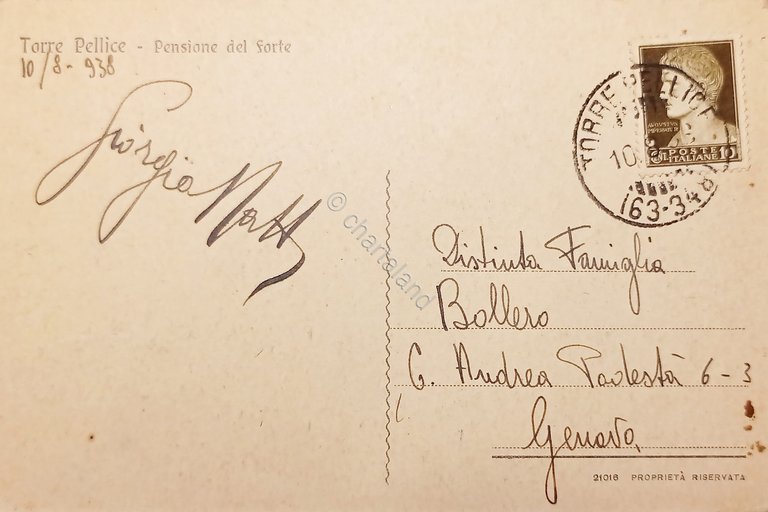 Torre Pellice - Pensione del Forte
10/8-938
Giorgia
TORRE PELLICE
10
(63-348)
POSTE
ITALIANE 10
Distinta Famiglia
Bollero
C. Andrea Podestà 6-3
Genova
21016 PROPRIETÀ RISERVATA
© chartaland